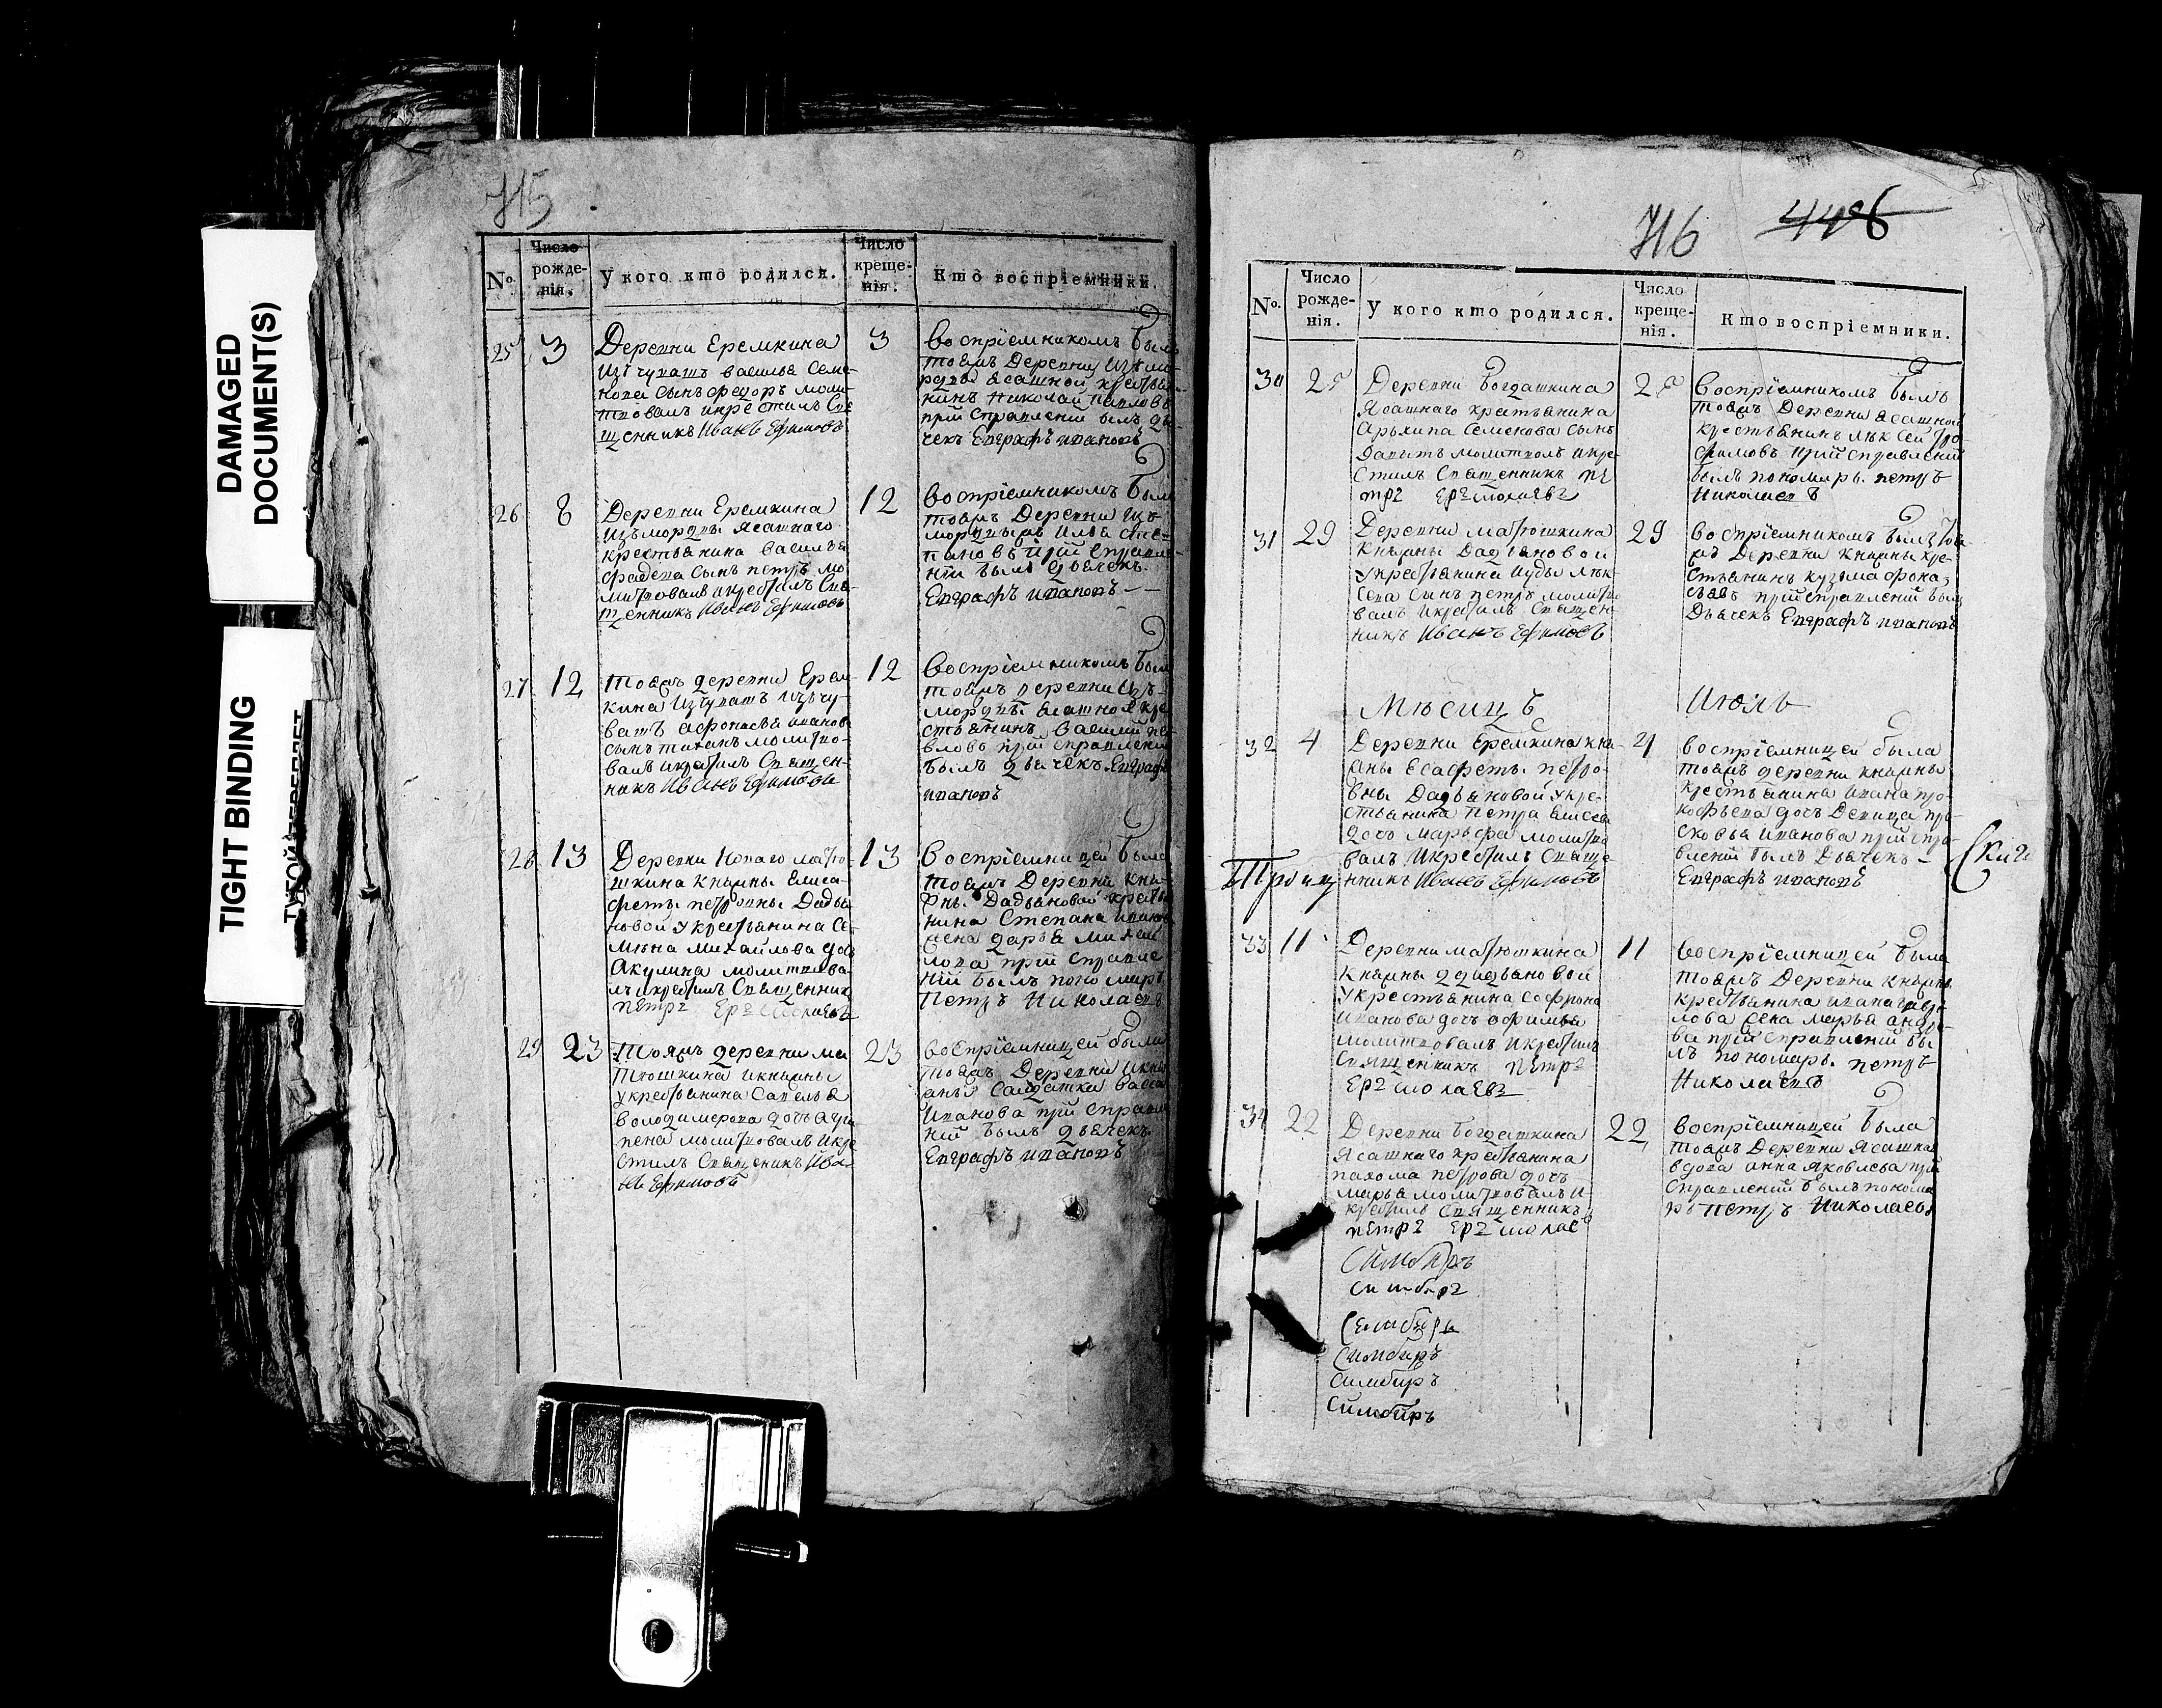 DAMAGED
DOCUMENT(S)
TIGHT BINDING
715
No.
Число
рожде-
нія.
У кого кто родился.
Число
креще-
нія.
Кто воспріемники.
25 3 Деревни Еремкина
изъ чувашъ василья Семе
нова сынъ федоръ моли
твовалъ икрестилъ Свя
щенникъ Иванъ Ефимовъ
3 воспріемникомъ былъ
тояжъ Деревни изъ мо
рдвы ясашной крестья
нинъ Николай Павловъ
при справленіи былъ дь
чекъ Евграфъ ивановъ
26 8 Деревни Еремкина
изъ мордвы ясашнаго
крестьянина василья
фадева сынъ петръ мо
литвовалъ икрестилъ Свя
щенникъ Иванъ Ефимовъ
12 воспріемникомъ был
тояжъ Деревни изъ
мордвы Илья сте
пановъ при справле
ніи былъ дьячекъ
Евграфъ ивановъ
27 12 тояжъ деревни Ерем
кина изъ чувашъ
афонасья иванова
сынъ молитво
валъ икрестилъ Священ
никъ Иванъ Ефимовъ
12 воспріемникомъ был
тояжъ деревни изъ
мордвы ясашной кре
стьянинъ василий па
вловъ при справлении
былъ дьячекъ Евграфъ
ивановъ
28 13 Деревни Новаго матю
шкина княжны Елиса
феты петровны Дадья
новой укрестьянина Се
мена михайлова дочь
Акулина молитвова
лъ икрестилъ Священникъ
петръ Ермолаевъ
13 воспріемницей была
тояжъ Деревни кня
жны Дадьяновой крестья
нина Степана иванова
жена дарья михай
лова при справле
ніи былъ пономарь
Петръ Николаевъ
29 23 тояжъ деревни ма
тюшкина икняжны
укрестьянина Савелья
володимерова дочь агри
пена молитвовалъ икре
стилъ Священникъ Ива
нъ Ефимовъ
23 воспріемницей была
тояжъ Деревни икня
жны Салдатка васса
Иванова при справле
ніи былъ дьячекъ
Евграфъ ивановъ
716 448
No.
Число
рожде-
нія.
У кого кто родился.
Число
креще-
нія.
Кто воспріемники.
30 25 Деревни богдашкина
Ясашнаго крестьянина
Архипа Семенова сынъ
Давытъ молитвовалъ икре
стилъ Священникъ пе
тръ Ермолаевъ
25 воспріемникомъ былъ
тояжъ Деревни ясашной
крестьянинъ Алексей тро
фимовъ при справленіи
былъ пономарь петръ
Николаевъ
31 29 Деревни матюшкина
Княжны Дадьяновой
укрестьянина иуды Алек
сева сынъ петръ молитво
валъ икрестилъ Священ
никъ Иванъ Ефимовъ
29 воспріемникомъ былъ тоя
жъ Деревни княжны кре
стьянинъ кузьма афона
сьевъ при справленіи былъ
Дьячекъ Евграфъ ивановъ
Месицъ Июль
32 4 Деревни Еремкина кня
жны Елисафеты петро
вны Дадьяновой укре
стьянина Петра Елисева
дочь марьфа молитво
валъ икрестилъ Свяще
нникъ Иванъ Ефимовъ
4 воспріемницей была
тояжъ деревни княжны
крестьянина ивана про
кофьева дочь Девица пра
сковья иванова при спра
вленіи былъ Дьячекъ
Евграфъ ивановъ
33 11 Деревни матюшкина
Княжны дадьяновой
укрестьянина Софрона
иванова дочь офимья
молитвовалъ икрестилъ
Священникъ петръ
Ермолаевъ
11 воспріемницей была
тояжъ Деревни княжны
крестьянина ивана гаври
лова жена марья андре
ва при справленіи бы
лъ пономарь петръ
Николаевъ
34 22 Деревни богдашкина
Ясашнаго крестьянина
пахома петрова дочь
марья молитвовалъ и
крестилъ Священникъ
петръ Ермолаевъ
22 воспріемницей была
тояжъ Деревни Ясашная
вдова анна Яковлева при
справленіи былъ понома
рь петръ Николаевъ
Симбиръ
симбиръ
Симбиръ
Симбиръ
Симбиръ